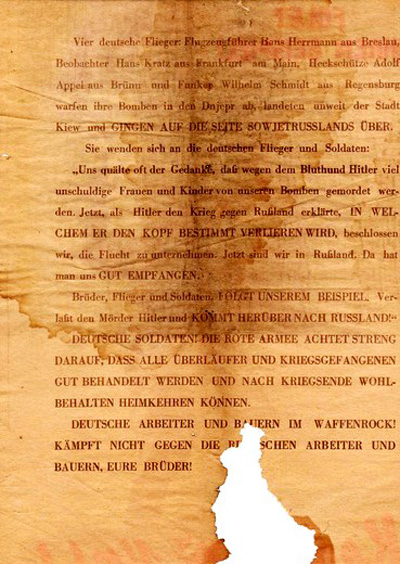 Vier deutsche Flieger: Flugzeugführer Hans Herrmann aus Breslau,
Beobachter Hans Kratz aus Frankfurt am Main, Heckschütze Adolf
Appel aus Brünn und Funker Wilhelm Schmidt aus Regensburg
warfen ihre Bomben in den Dnjepr ab, landeten unweit der Stadt
Kiew und GINGEN AUF DIE SEITE SOWJETRUSSLANDS ÜBER.
Sie wenden sich an die deutschen Flieger und Soldaten:
„Uns quälte oft der Gedanke, daß wegen dem Bluthund Hitler viel
unschuldige Frauen und Kinder von unseren Bomben gemordet wer-
den. Jetzt, als Hitler den Krieg gegen Rußland erklärte, IN WEL-
CHEM ER DEN KOPF BESTIMMT VERLIEREN WIRD, beschlossen
wir, die Flucht zu unternehmen. Jetzt sind wir in Rußland. Da hat
man uns GUT EMPFANGEN.
Brüder, Flieger und Soldaten, FOLGT UNSEREM BEISPIEL. Ver-
laßt den Mörder Hitler und KOMMT HERÜBER NACH RUSSLAND!“
DEUTSCHE SOLDATEN! DIE ROTE ARMEE ACHTET STRENG
DARAUF, DASS ALLE ÜBERLÄUFER UND KRIEGSGEFANGENEN
GUT BEHANDELT WERDEN UND NACH KRIEGSENDE WOHL-
BEHALTEN HEIMKEHREN KÖNNEN.
DEUTSCHE ARBEITER UND BAUERN IM WAFFENROCK!
KÄMPFT NICHT GEGEN DIE ARBEITER UND
BAUERN, EURE BRÜDER!